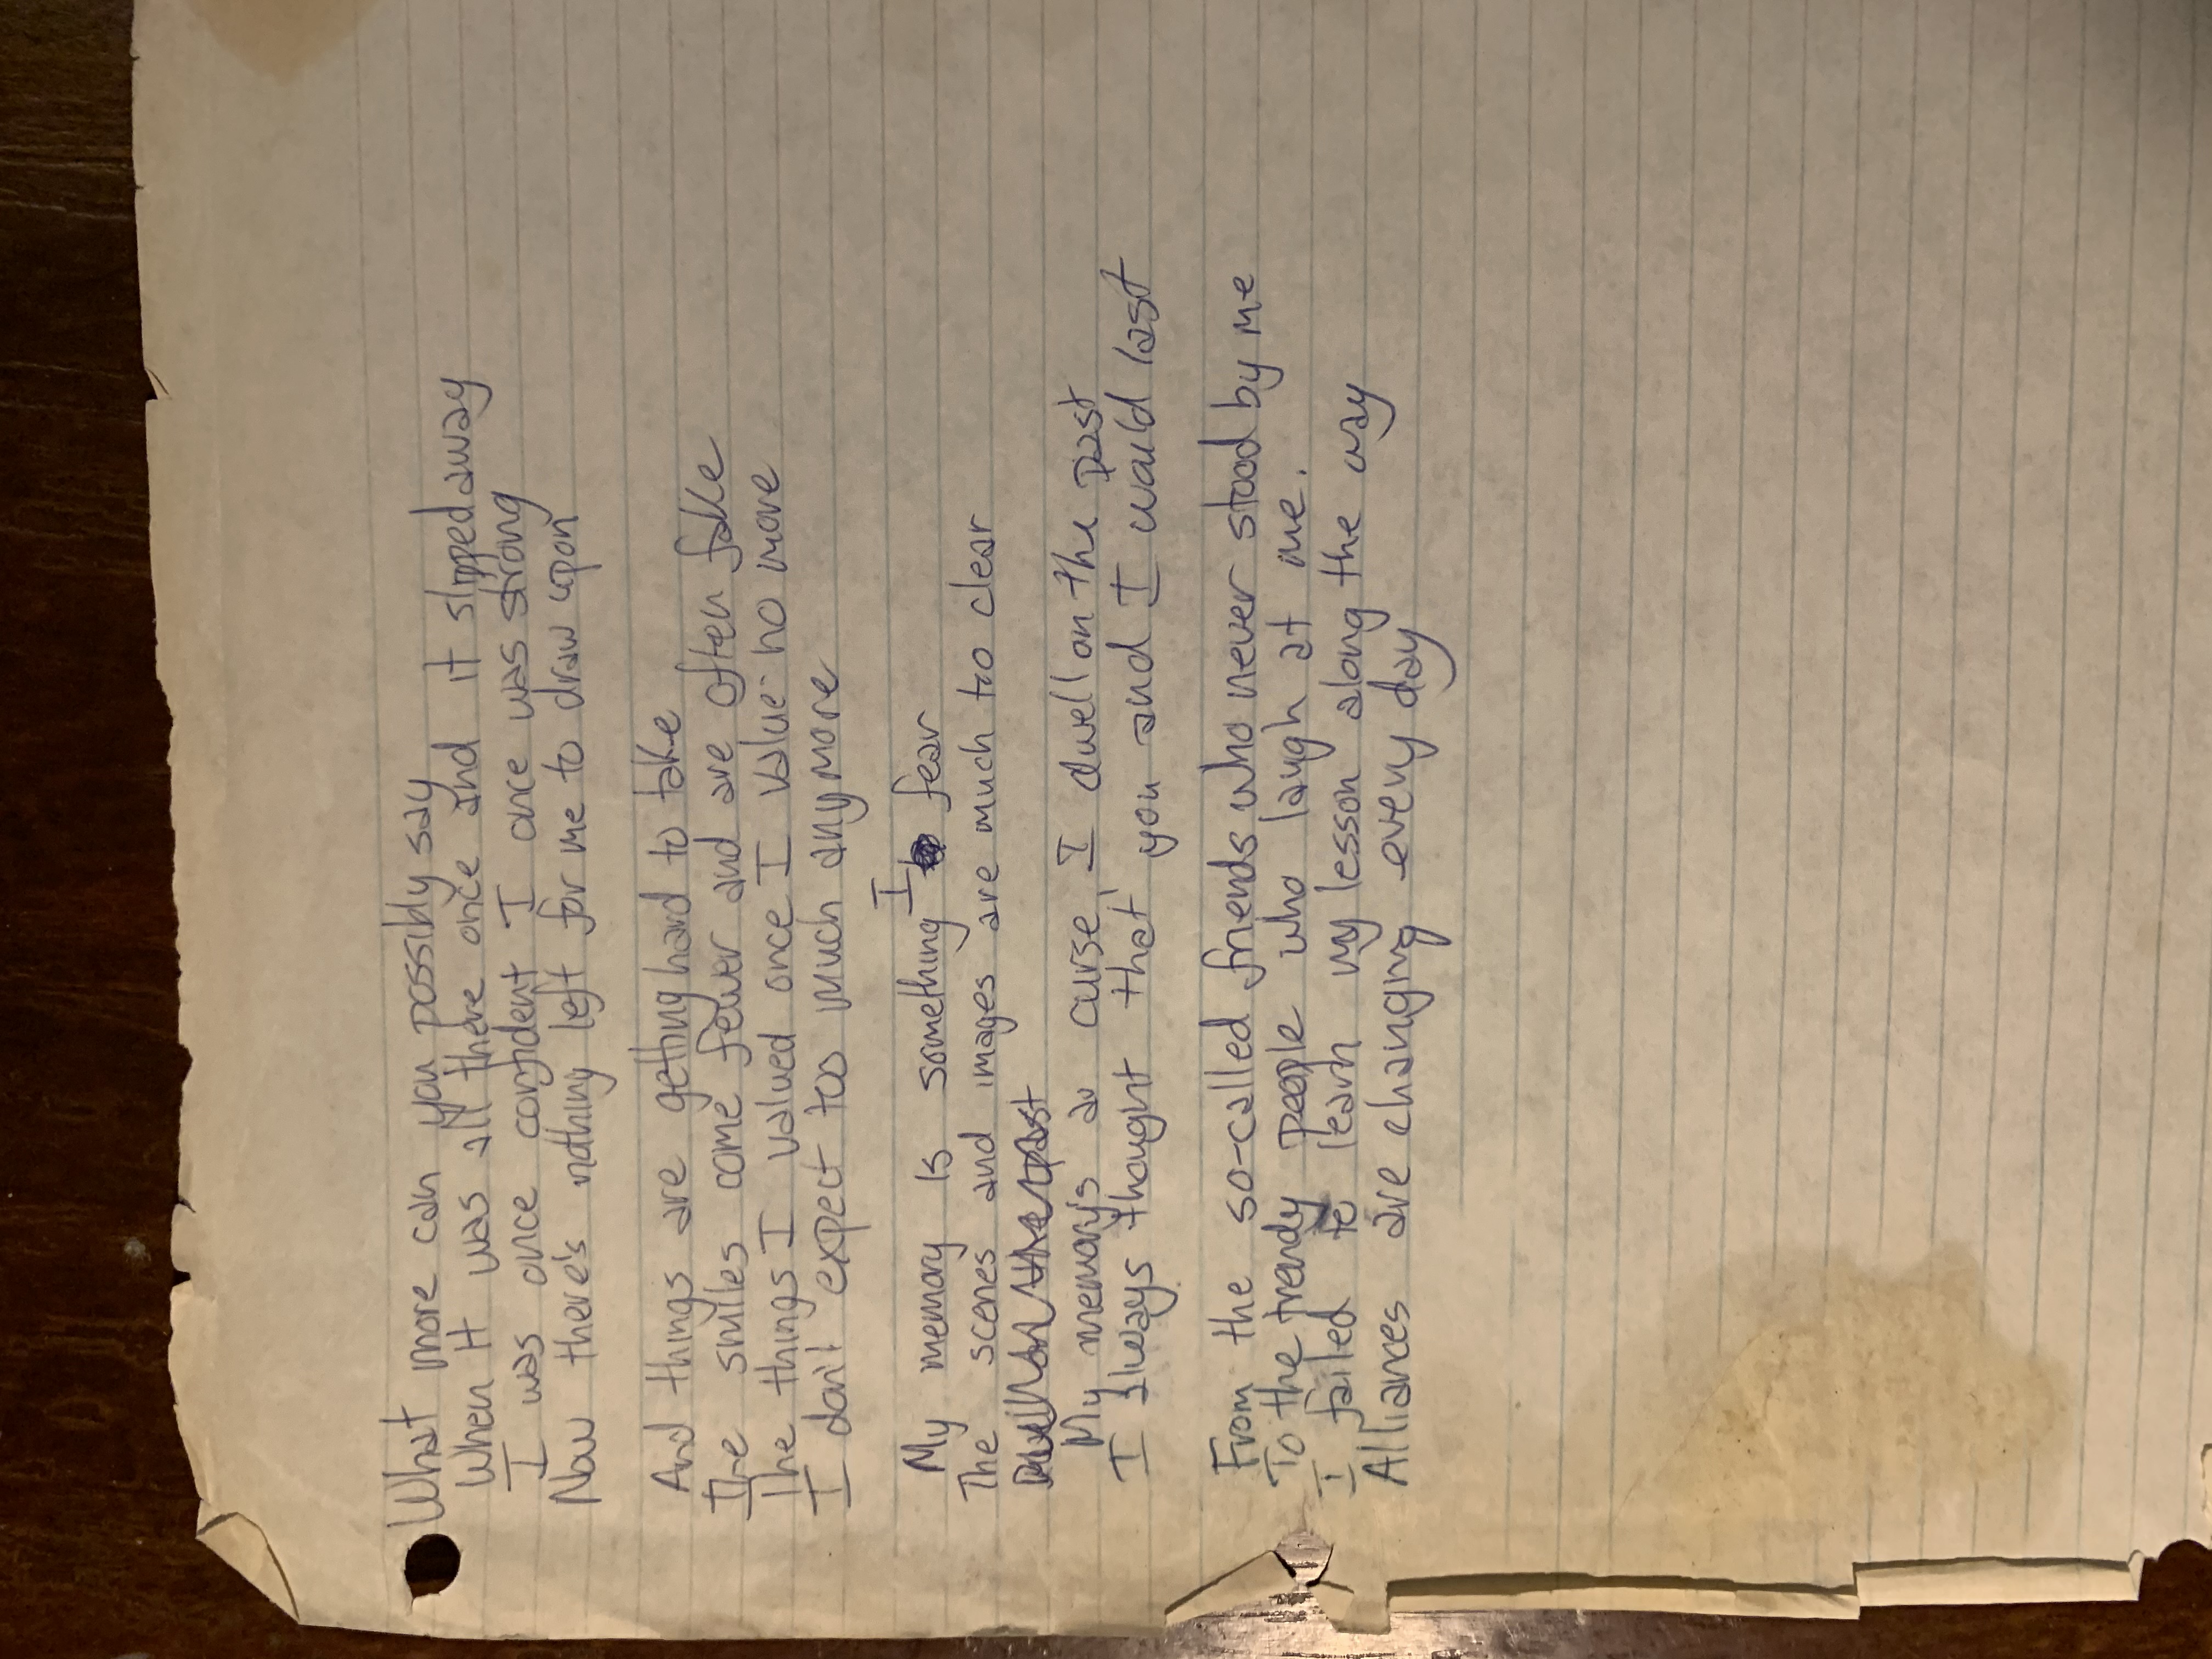 What more can you possibly say
When it was all there once and it slipped away
I was once confident I once was strong
Now there's nothing left for me to draw upon
And things are getting hard to take
The smiles come fewer and are often fake
The things I valued once I value no more
I don't expect too much anymore
My memory is something I fear
The scenes and images are much too clear
Dwell on the past
My memory's a curse, I dwell on the past
I always thought that you and I would last
From the so-called friends who never stood by me
To the trendy people who laugh at me.
I failed to learn my lesson along the way
Alliances are changing every day